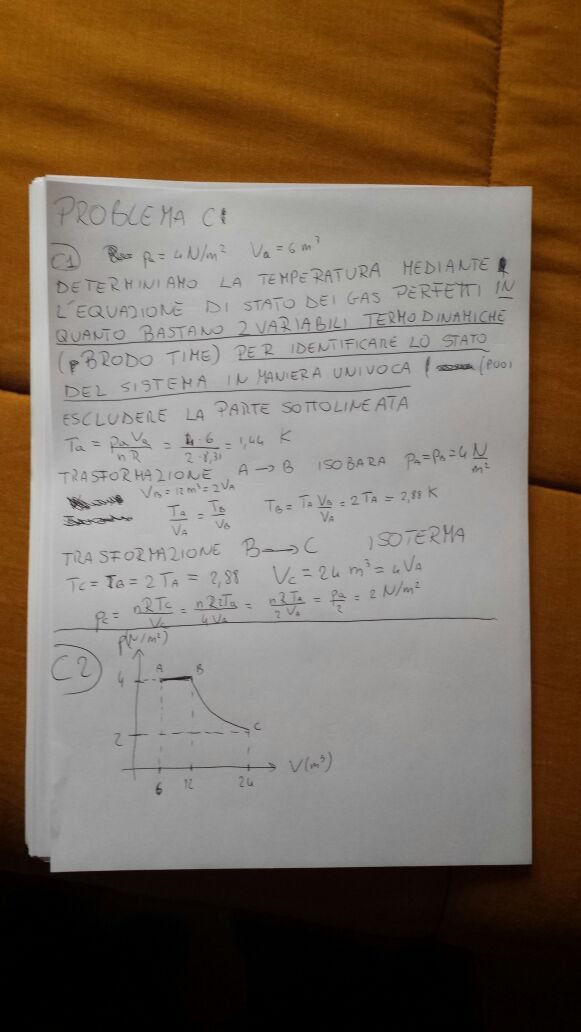 PROBLEMA C1
C1 pₐ = 4 N/m² Vₐ = 6 m³
DETERMINIAMO LA TEMPERATURA MEDIANTE
L'EQUAZIONE DI STATO DEI GAS PERFETTI IN
QUANTO BASTANO 2 VARIABILI TERMODINAMICHE
(pBRODO TIME) PER IDENTIFICARE LO STATO
DEL SISTEMA IN MANIERA UNIVOCA (PUOI
ESCLUDERE LA PARTE SOTTOLINEATA
Ta = paVa/nR = 4·6/2·8,31 = 1,44 K
TRASFORMAZIONE A → B ISOBARA pA = pB = 4 N/m²
VB = 12 m³ = 2VA
TA/VA = TB/VB TB = TA VB/VA = 2TA = 2,88 K
TRASFORMAZIONE B → C ISOTERMA
TC = TB = 2TA = 2,88 VC = 24 m³ = 4VA
pC = nRTC/VC = nR2TA/4VA = nRTA/2VA = pa/2 = 2 N/m²
C2 p(N/m²)
4 A B
2 C
6 12 24 V(m³)